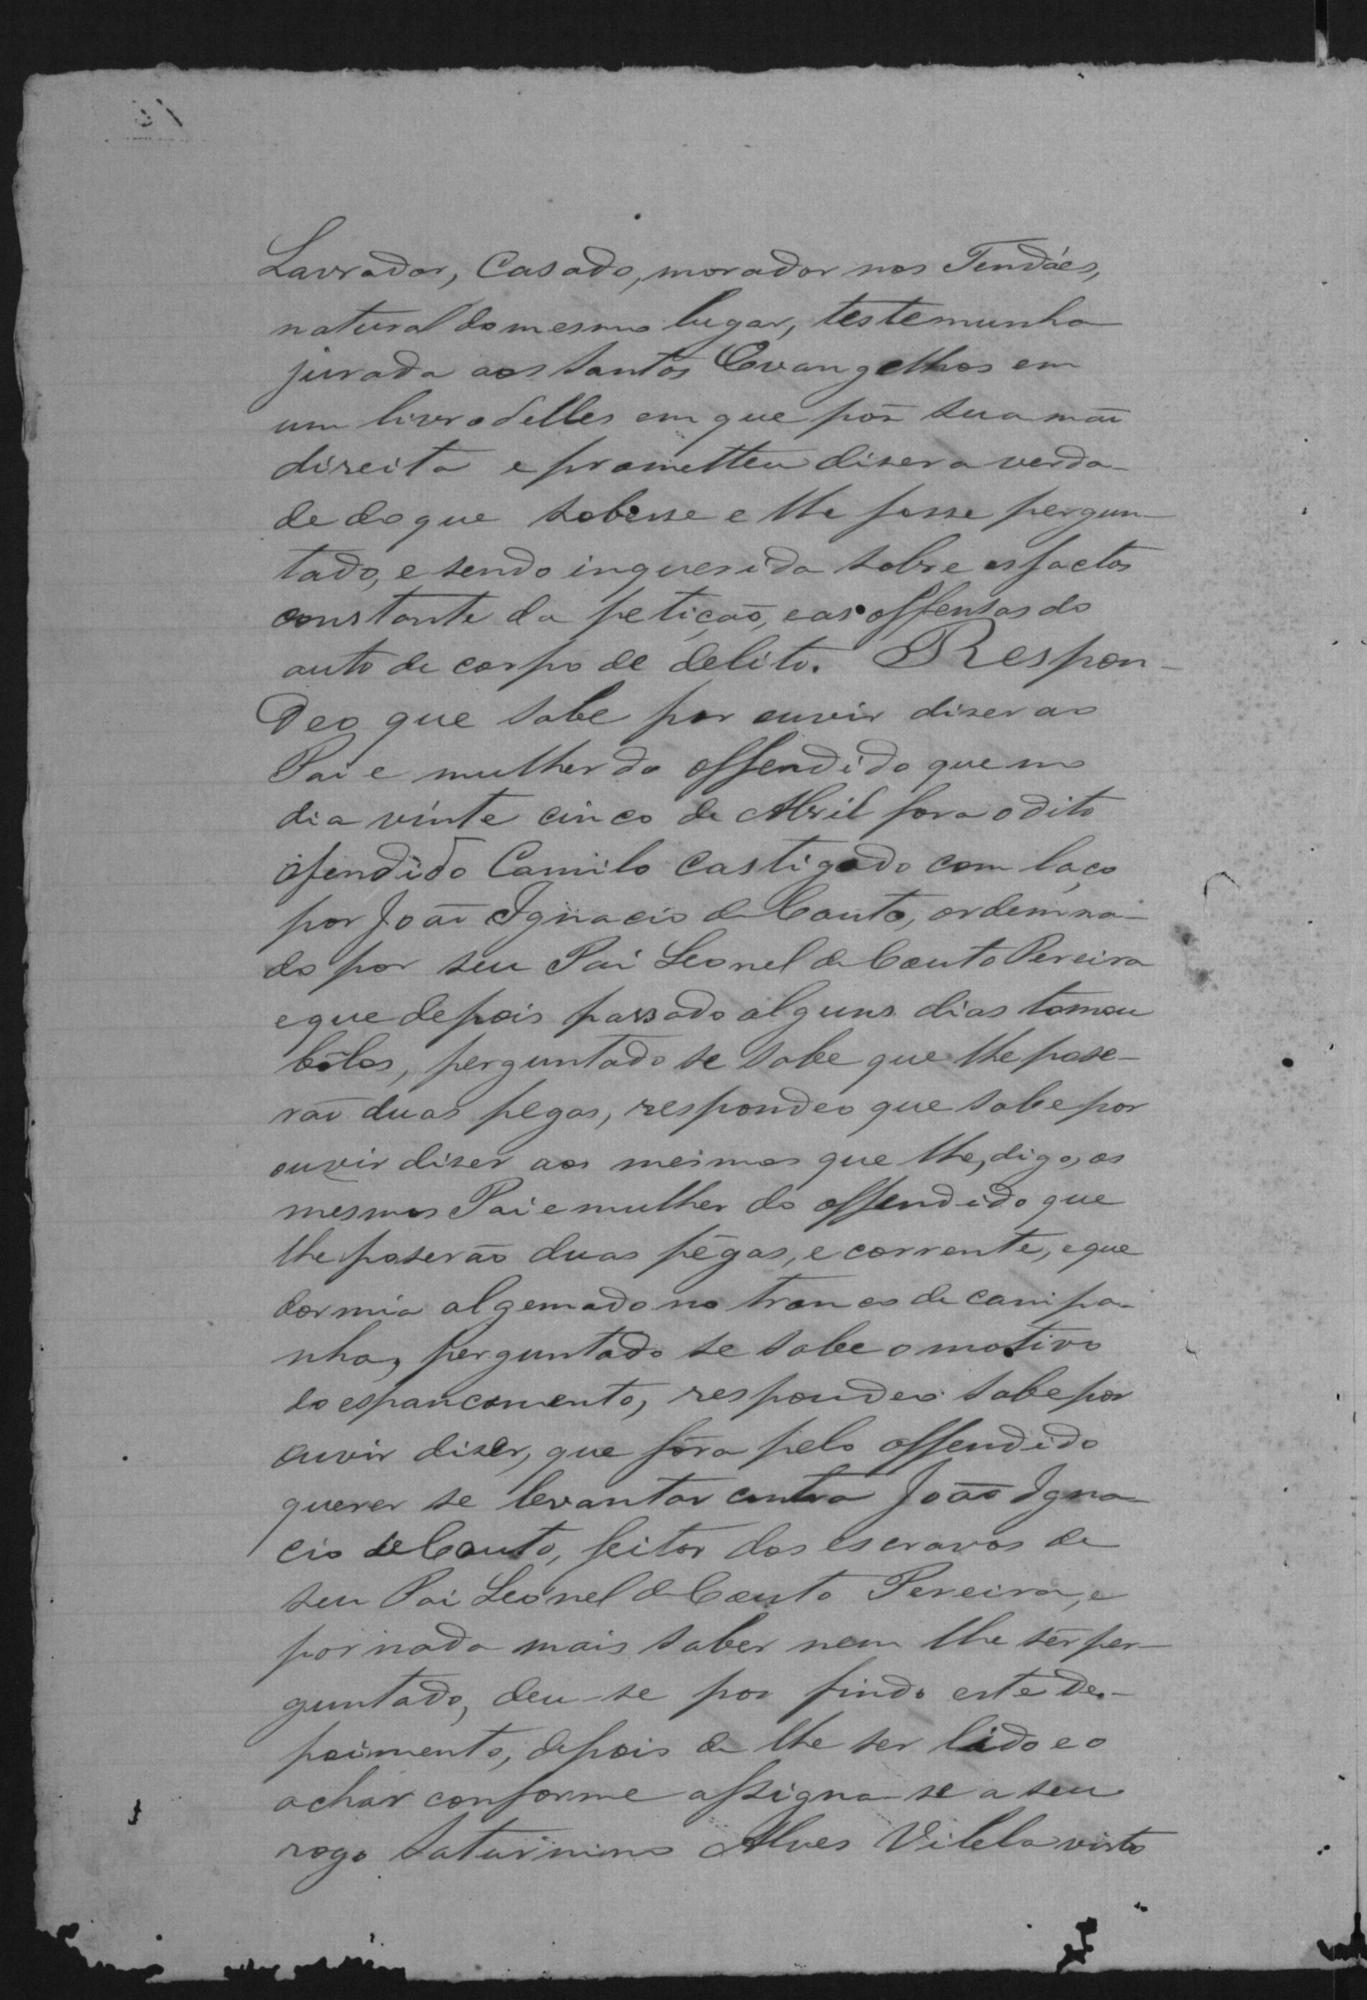 Lavrador, Casado, morador nos Tendáes,
natural do mesmo lugar, testemunha
jurada aos Santos Evangelhos em
um livro delles em que pôz sua mão
direita e prometteu diser a verda-
de do que sobesse e lhe fosse pergun-
tado, e sendo inquerida sobre os factos
constante da petição, e as offensas do
auto de corpo de delito. Respon-
deo que sabe por ouvir diser ao
Pai e mulher do offendido que no
dia vinte cinco de Abril fora o dito
ofendido Camilo Castigado com laço
por João Ignacio do Couto, ordemna-
do por seu Pai Leonel do Couto Pereira
e que depois passado alguns dias tomou
bôlos, perguntado se sabe que lhe pose-
rão duas pegas, respondeo que sabe por
ouvir diser aos mesmos que lhe, digo, os
mesmos Pai e mulher do offendido que
lhe poserão duas pêgas, e corrente, e que
dormia algemado no tronco de campa-
nha, perguntado se sabe o motivo
do espancamento, respondeo sabe por
ouvir diser, que fôra pelo offendido
querer se levantar contra João Igna-
cio do Couto, feitor dos escravos de
seu Pai Leonel do Couto Pereira, e
por nada mais saber nem lhe ser per-
guntado, deu-se por findo este de-
poimento, depois de lhe ser lido e o
achar conforme assigna-se a seu
rogo Saturnino Alves Vilela visto